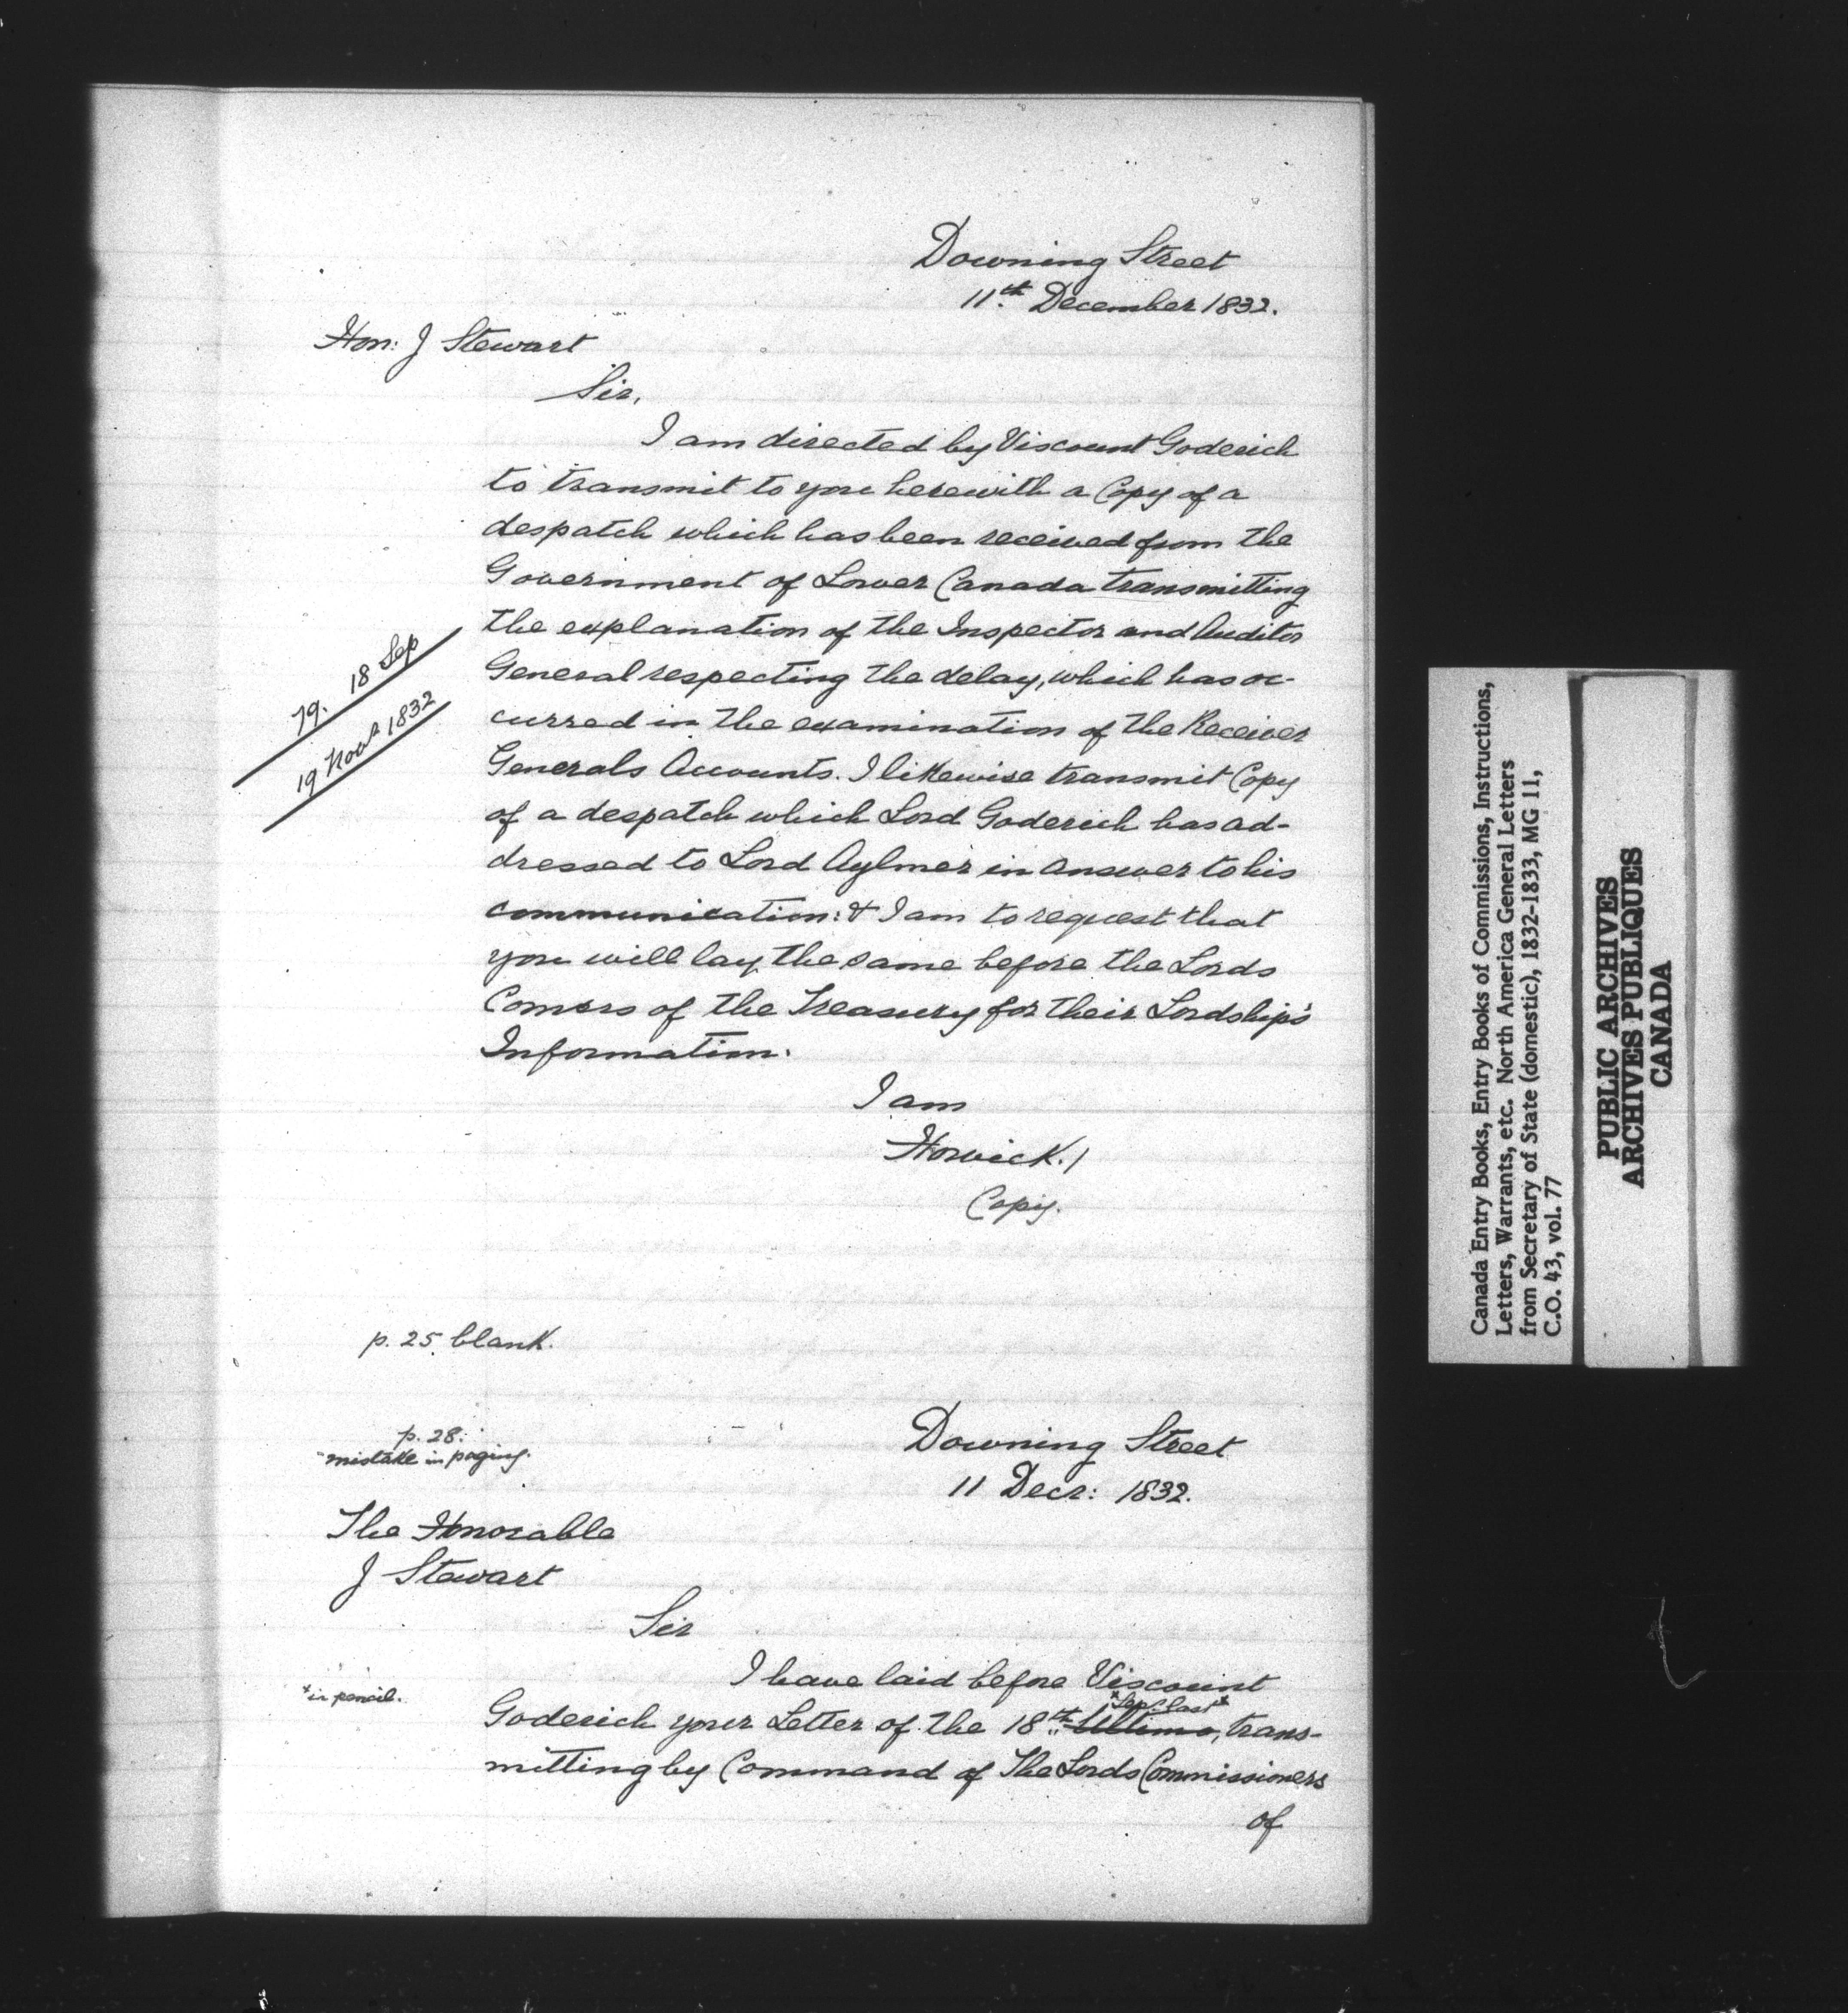 Downing Street
11th December 1832.
Hon: J Stewart
Sir,
I am directed by Viscount Goderich
to transmit to you herewith a Copy of a
despatch which has been received from the
Government of Lower Canada transmitting
the explanation of the Inspector and Auditor
General respecting the delay, which has oc-
curred in the examination of the Receiver
Generals Accounts. I likewise transmit Copy
of a despatch which Lord Goderich has ad-
dressed to Lord Aylmer in answer to his
communication: & I am to request that
you will lay the same before the Lords
Comers of the Treasury for their Lordship's
Information.
79. 18 Sep
19 Novr 1832
I am
Howick. /
Copy.
p. 25 blank.
p. 28.
mistake in paging.
Downing Street
11 Decr: 1832.
The Honorable
J Stewart
Sir
I have laid before Viscount
*in pencil.
*Sept last*
Goderich your Letter of the 18th Ultimo, trans-
mitting by Command of The Lords Commissioners
of
Canada Entry Books, Entry Books of Commissions, Instructions,
Letters, Warrants, etc. North America General Letters
from Secretary of State (domestic), 1832-1833, MG 11,
C.O. 43, vol. 77
PUBLIC ARCHIVES
ARCHIVES PUBLIQUES
CANADA